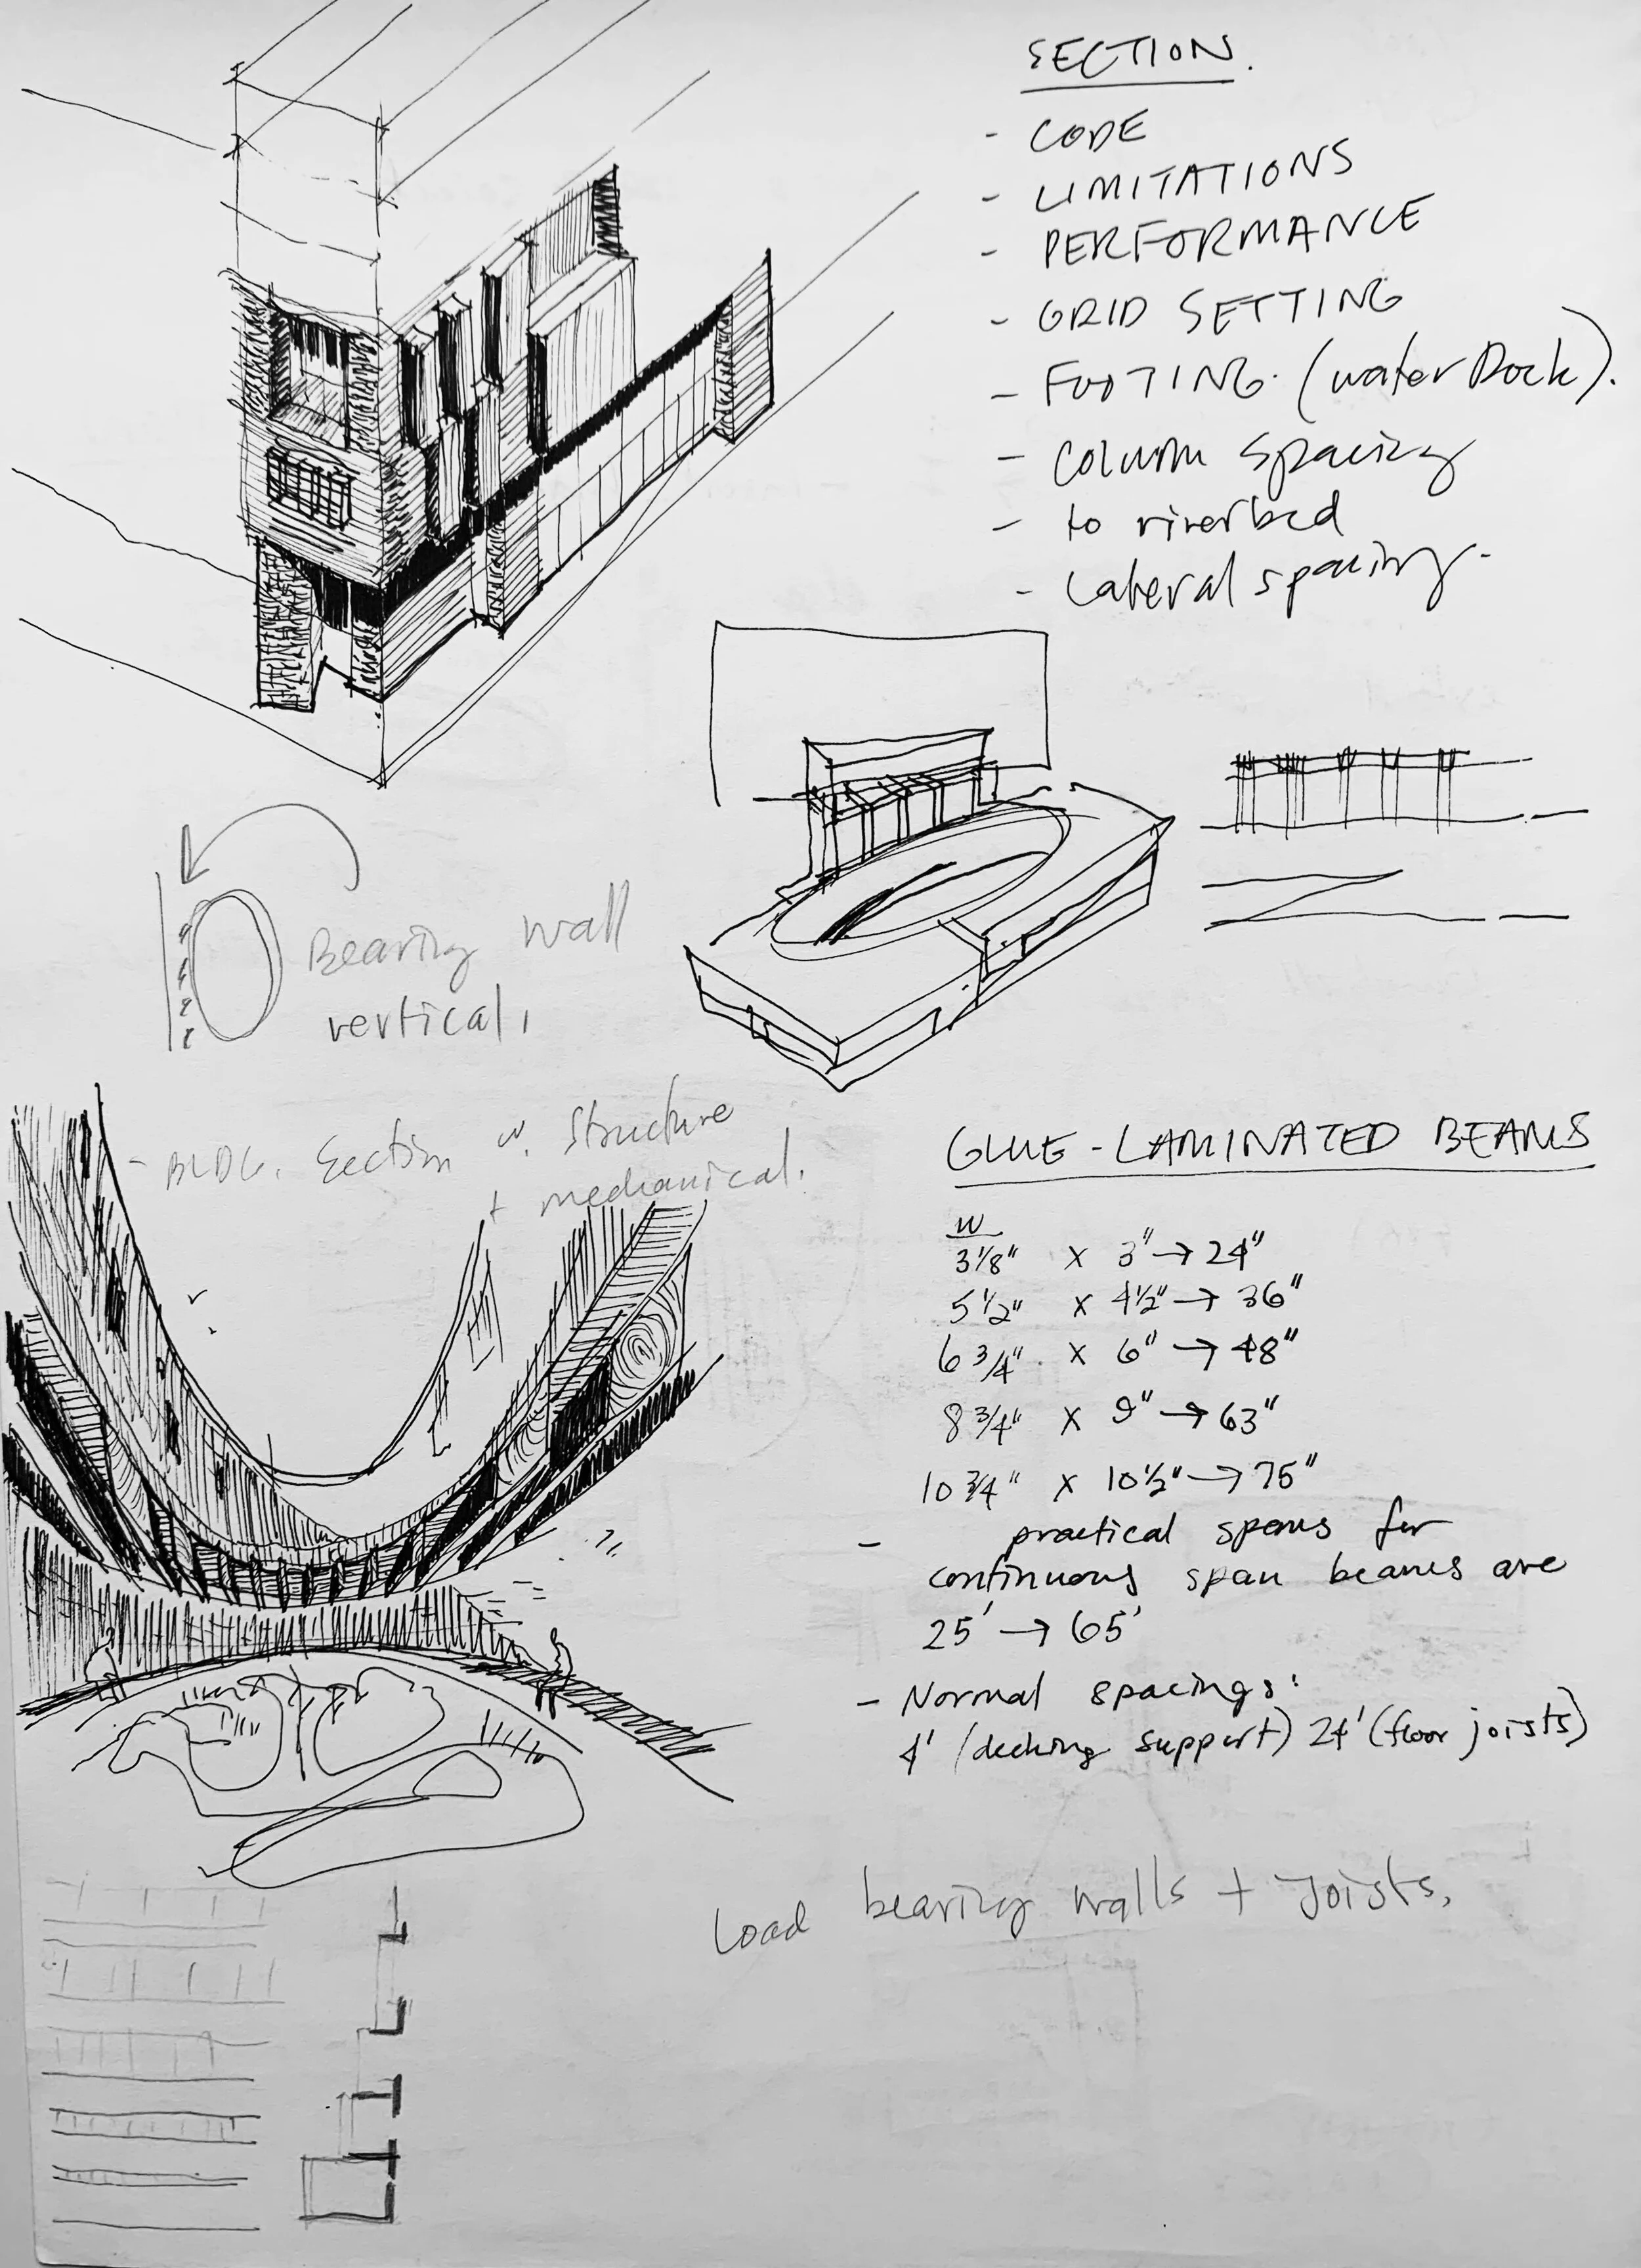 SECTION.
- CODE
- LIMITATIONS
- PERFORMANCE
- GRID SETTING
- FOOTING. (water Dock).
- Column spacing
- to riverbed
- Lateral spacing.
Bearing wall
vertical.
- BLDG. Section w. Structure
+ mechanical.
GLUE-LAMINATED BEAMS
W
3 1/8" x 3" → 24"
5 1/2" x 4 1/2" → 36"
6 3/4" x 6" → 48"
8 3/4" x 9" → 63"
10 3/4" x 10 1/2" → 75"
- practical spans for
continuous span beams are
25' → 65'
- Normal spacings:
4' (decking support) 24' (floor joists)
Load bearing walls + Joists.